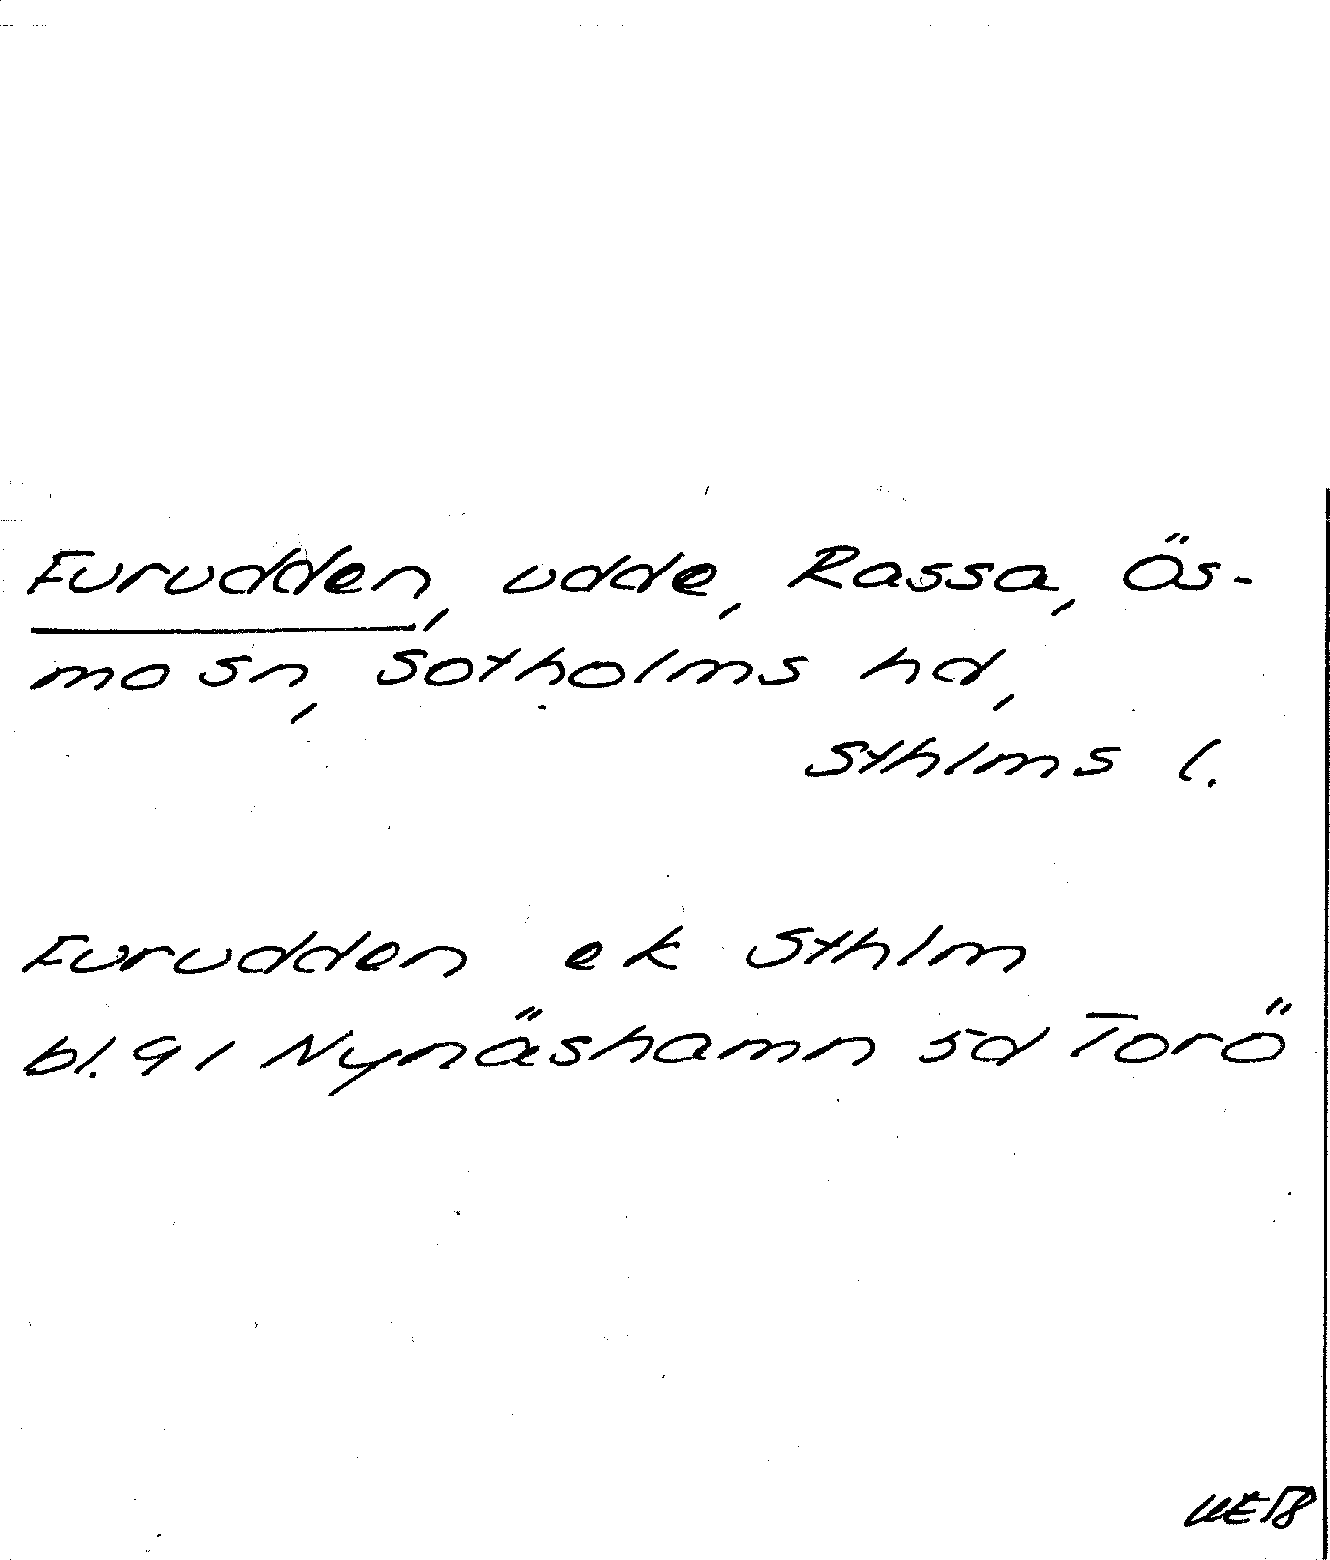 Furudden, udde, Rassa, Ös-
mo sn, Sotholms hd,
Sthlms l.
Furudden ek Sthlm
bl. 91 Nynäshamn sd Torö